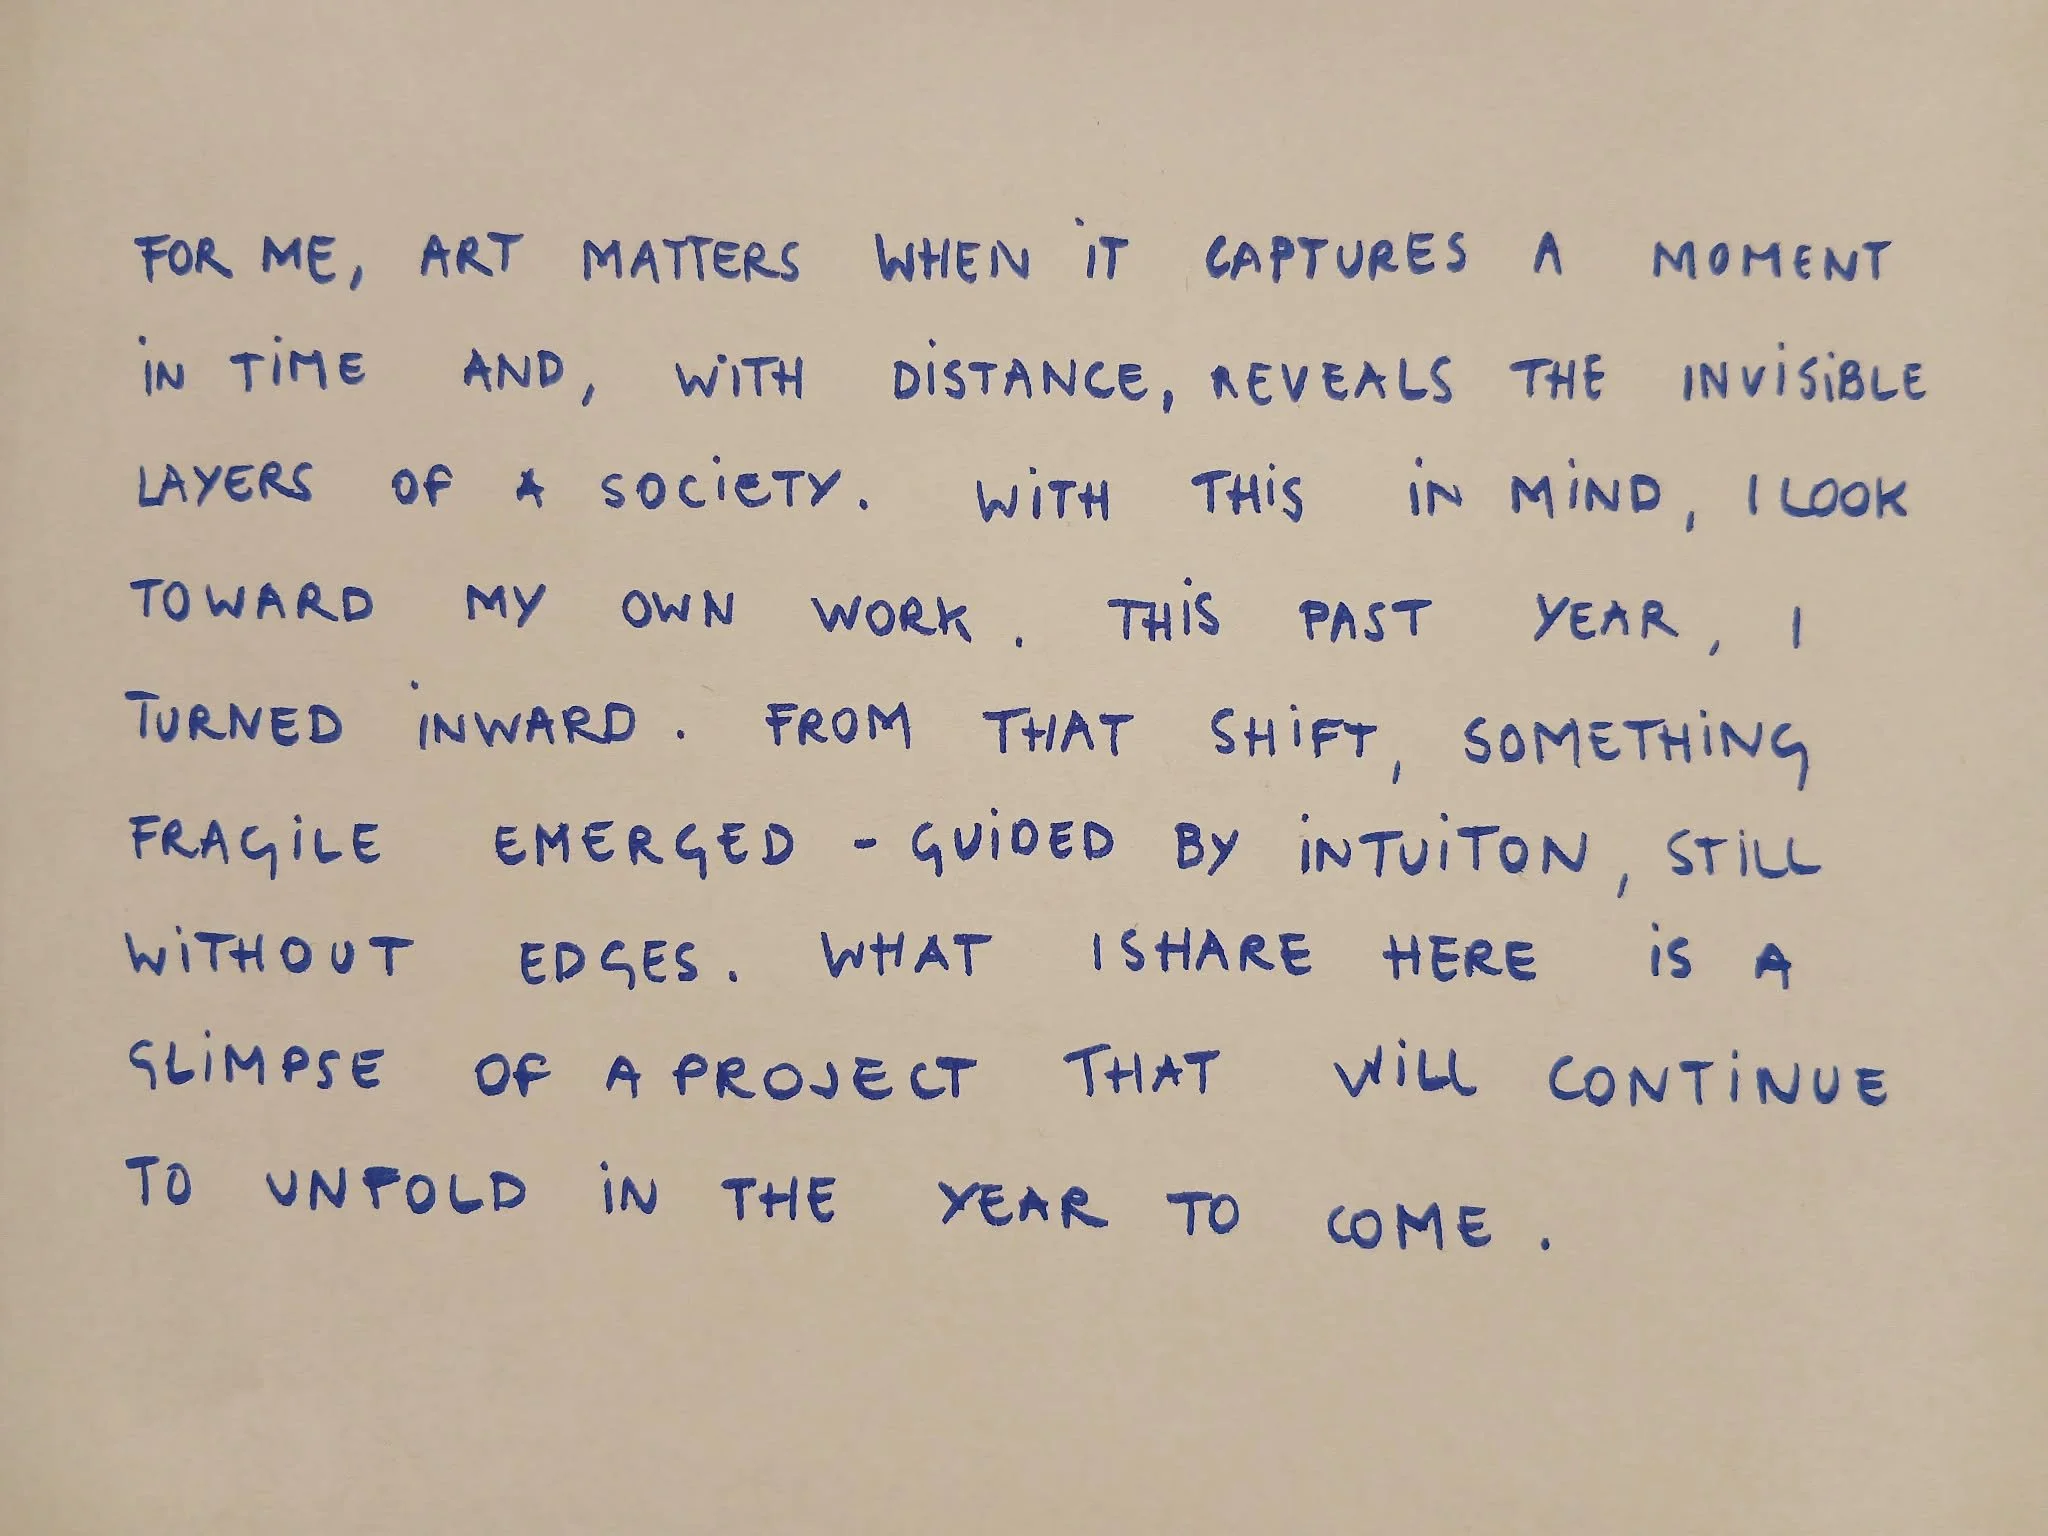 FOR ME, ART MATTERS WHEN iT CAPTURES A MOMENT
iN TiME AND, WiTH DiSTANCE, REVEALS THE INViSiBLE
LAYERS OF A SOCiETY. WiTH THiS iN MiND, I LOOK
TOWARD MY OWN WORK. THiS PAST YEAR, I
TURNED iNWARD. FROM THAT SHiFT, SOMETHiNG
FRAGiLE EMERGED - GUiDED BY iNTUiTON, STiLL
WiTHOUT EDGES. WHAT I SHARE HERE iS A
GLiMPSE OF A PROJECT THAT WiLL CONTiNUE
TO UNFOLD iN THE YEAR TO COME.